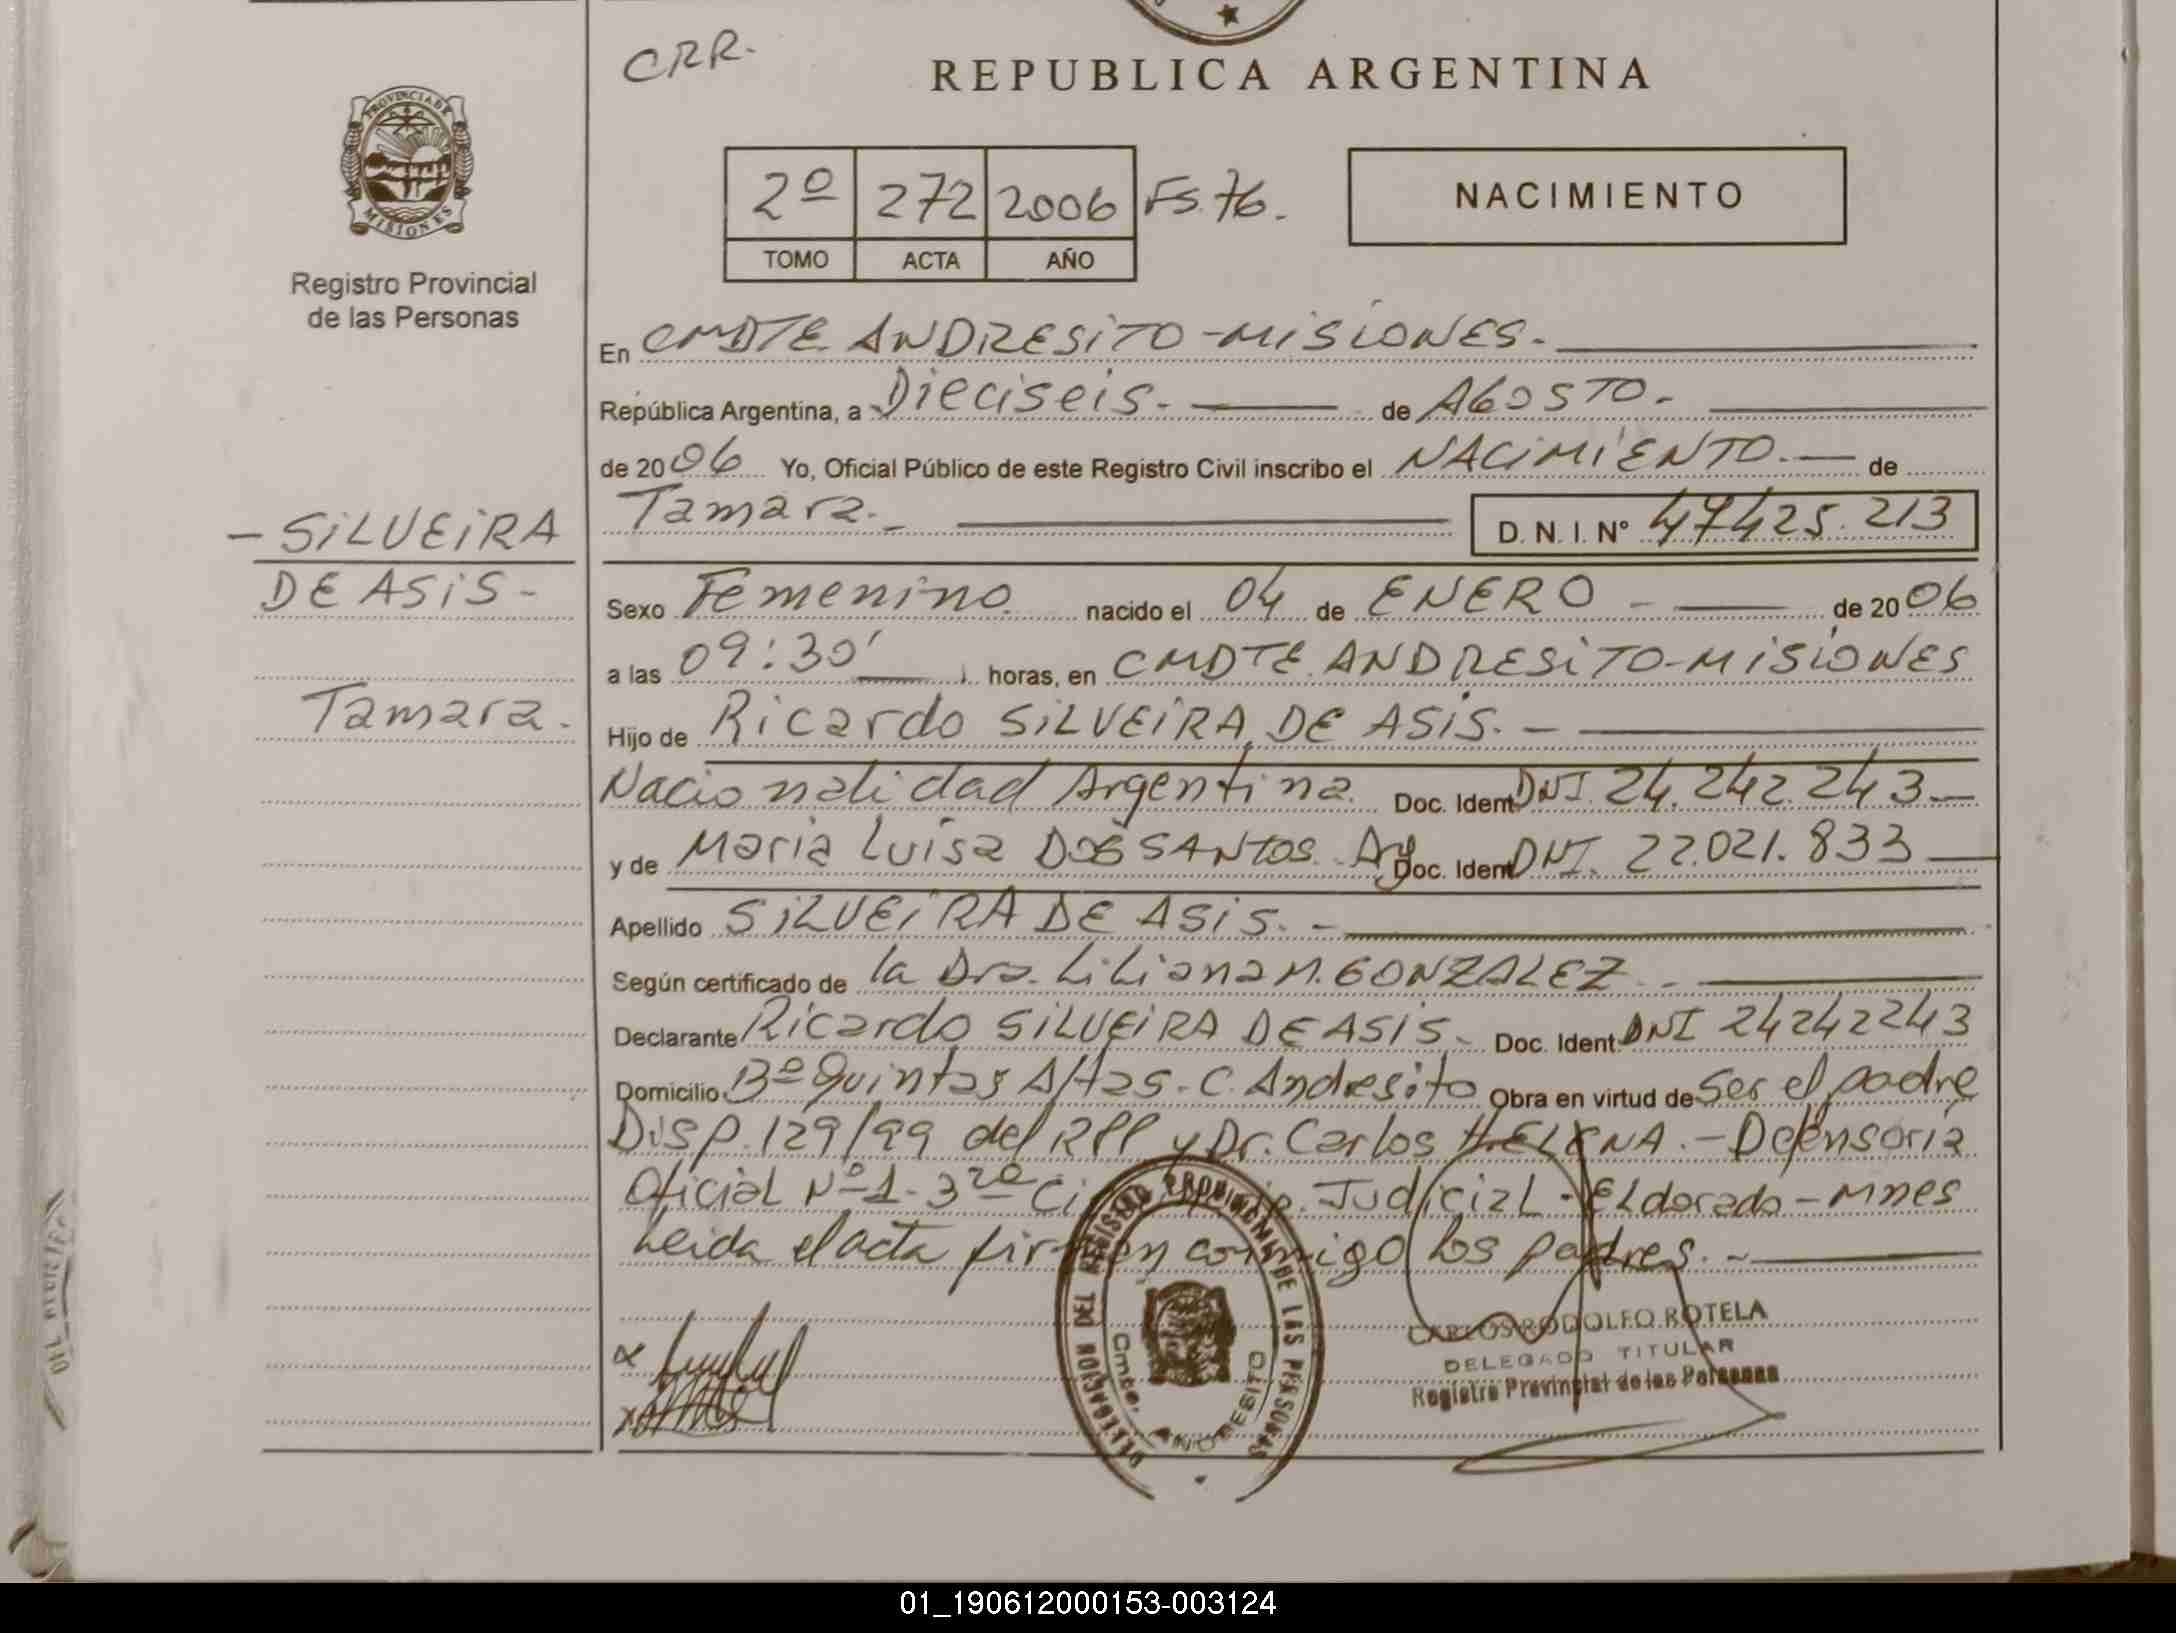 CRR.
REPUBLICA ARGENTINA
PROVINCIA DE
MISIONES
Registro Provincial
de las Personas
2º 272 2006 FS. 76.
TOMO ACTA AÑO
NACIMIENTO
En CMDTE ANDRESITO - MISIONES.
República Argentina, a Dieciseis. de AGOSTO.
de 2006 Yo, Oficial Público de este Registro Civil inscribo el NACIMIENTO. de
Tamara. D. N. I. Nº 47425.213
- SILVEIRA
DE ASIS -
Tamara.
Sexo Femenino nacido el 04 de ENERO - de 2006
a las 09:30' horas, en CMDTE. ANDRESITO - MISIONES
Hijo de Ricardo SILVEIRA DE ASIS. -
Nacionalidad Argentina. Doc. Ident DNI. 24.242.243 -
y de Maria Luisa DOS SANTOS. Arg Doc. Ident DNI. 22.021.833
Apellido SILVEIRA DE ASIS. -
Según certificado de la Dra. Liliana M. GONZALEZ
Declarante Ricardo SILVEIRA DE ASIS. Doc. Ident. DNI 24242243
Domicilio Bº Quintas Altas - C. Andresito Obra en virtud de Ser el padre
Disp. 129/99 del RPP y Dr. Carlos - Defensoria
Oficial Nº 1 - 3ra Judicial - Eldorado - Mnes
Leida el acta firman conmigo los padres. -
DELEGACION DEL REGISTRO PROVINCIAL DE LAS PERSONAS
Cmte. ANDRESITO
CARLOS RODOLFO ROTELA
DELEGADO TITULAR
Registro Provincial de las Personas
01_190612000153-003124